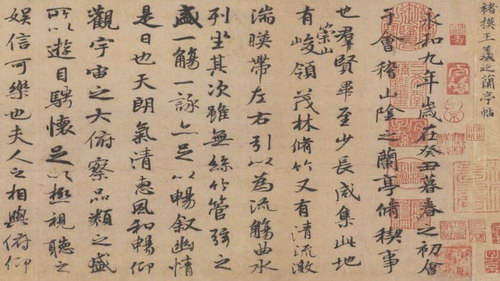 褚摸王羲之蘭亭帖
永和九年歲在癸丑暮春之初會
于會稽山陰之蘭亭脩稧事
也群賢畢至少長咸集此地
有崇山峻領茂林脩竹又有清流激
湍暎帶左右引以為流觴曲水
列坐其次雖無絲竹管弦之
盛一觴一詠亦足以暢敘幽情
是日也天朗氣清惠風和暢仰
觀宇宙之大俯察品類之盛
所以遊目騁懷足以極視聽之
娛信可樂也夫人之相與俯仰